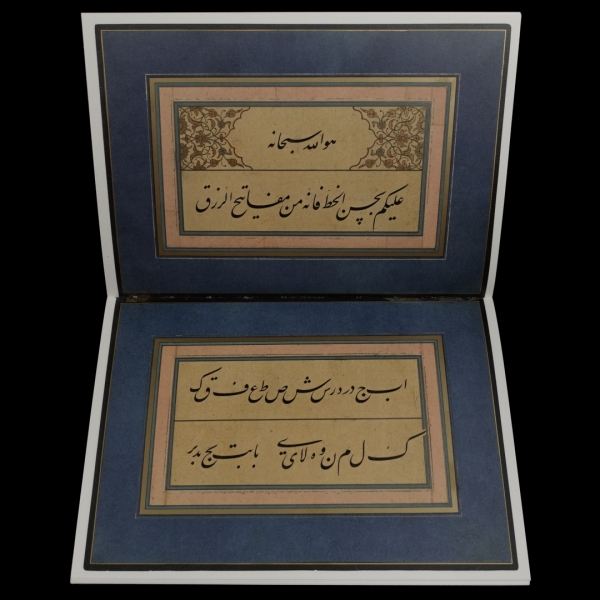 هوالله سبحانه
علیکم بحسن الخط فانه من مفاتیح الرزق
ا ب ج د ر د ر س ش ص ط ع ف ق و ک
ک ل م ن و ه لا ی ی با بت بج بد بر